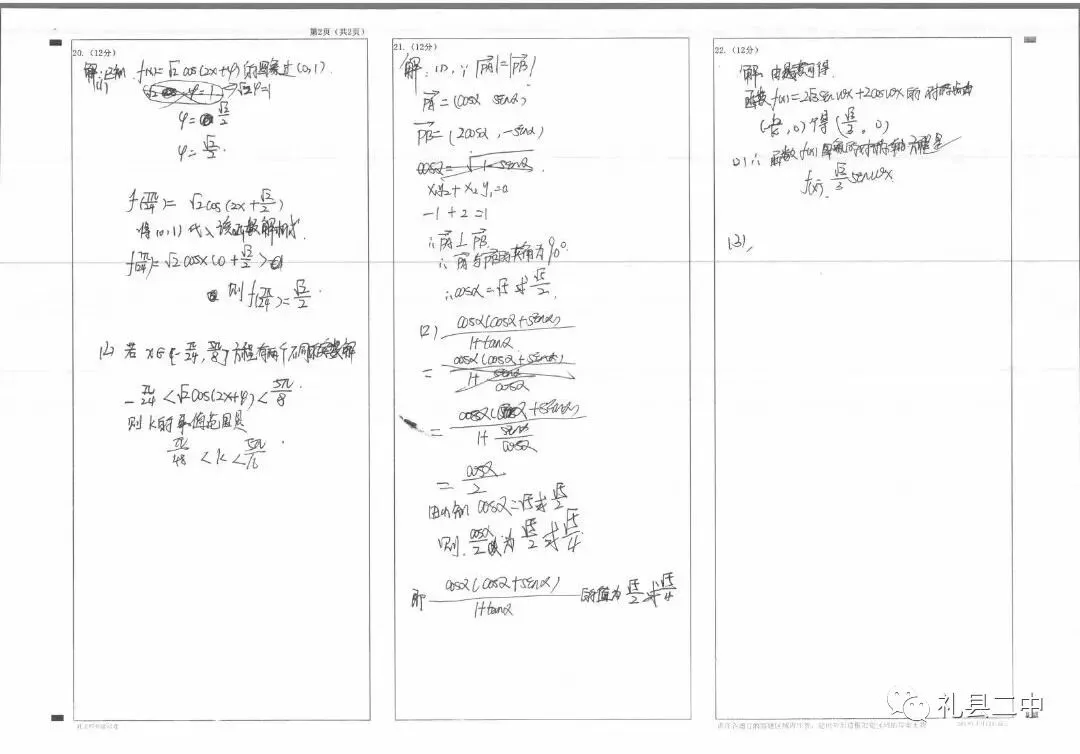 第2页（共2页）
20.（12分）
解:已知 f(x)=√2cos(2x+φ)的图象过(0,1).
(1)
√2φ=1
φ=√2/2
φ=√2/2.
f(π/24)=√2cos(2x+√2/2)
得(0,1)代入该函数解析式.
f(π/24)=√2cosx(0+√2/2)
则f(π/24)=√2/2.
(2) 若 x∈[-π/24, 5π/8]方程有两个不同实数解
-π/24<√2cos(2x+φ)<5π/8
则k的取值范围是
π/48<k<5π/16
21.（12分）
解:(1)∵|PA|=|PB|
PA=(cosα sinα)
PB=(2cosα,-sinα)
cosα=√1-sinα
x₁y₂+x₂y₁=0
-1+2=1
∴PA⊥PB
∴PA与PB的夹角为90°.
∴cosα=√5或√5/2.
(2) cosα(cosα+sinα)/1+tanα
=cosα(cosα+sinα)/1+sinα/cosα
=cosα(cosα+sinα)/1+sinα/cosα
=cosα/2
由(1)知 cosα=√5或√5/2
则cosα/2为√5/2或√5/4
即cosα(cosα+sinα)/1+tanα的值为√5/2或√5/4
22.（12分）
解:由题意可得.
函数f(x)=2√3sinωx+2cosωx的对称
,0)得(√3/2,0)
(2)∴函数f(x)图象的对称轴方程是
f(x)=√2/3sinωx.
(3),
礼县二中